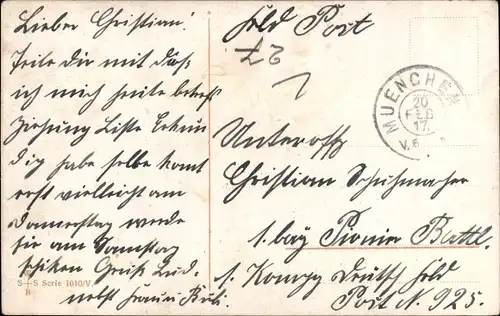 Lieber Christian!
Teile Dir mit das
ich mich heute betreff
Ziehung Liste Erkun
dig habe selbe komt
erst vielleicht am
Donnerstag werde
sie am Samstag
schiken Gruß Lud.
nebst Frau u
S+S Serie 1010/V.
B
Feld Post
27
MUENCHEN
20
FEB
17.
V. 6
Unteroffz
Christian Schuhmacher
1. bay Pionier Battl.
1. Kompg Deutsch Feld
Post N. 925.